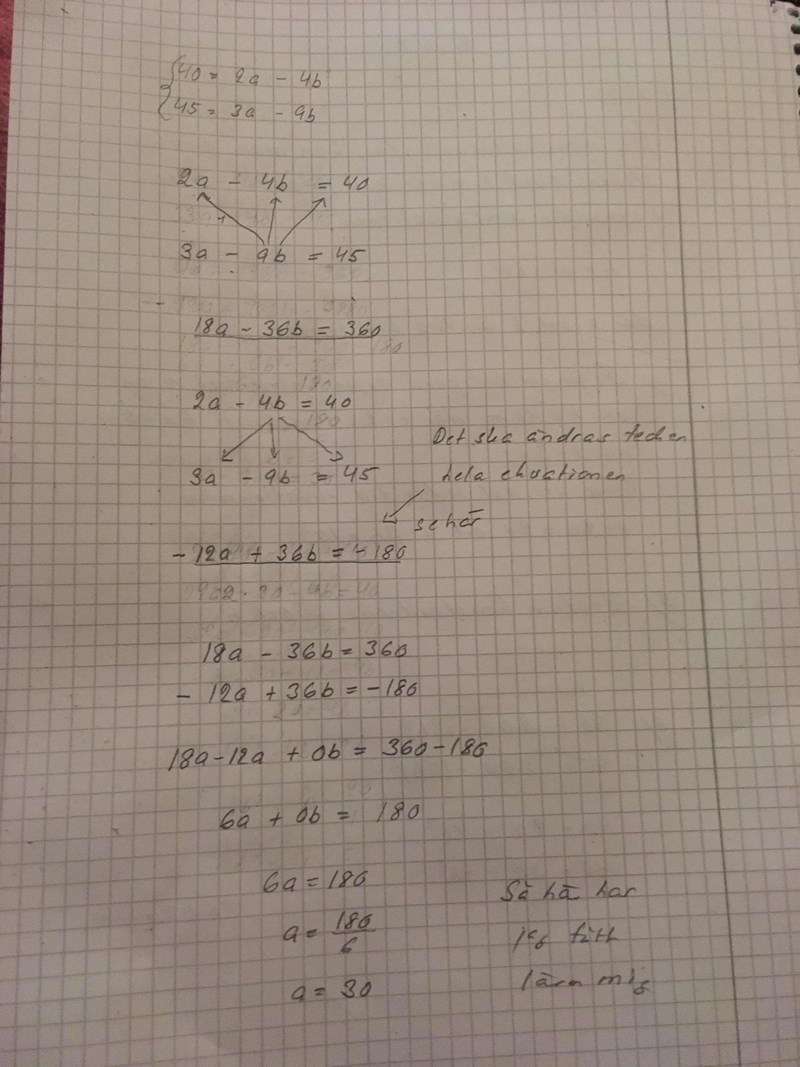 40 = 2a - 4b
45 = 3a - 9b
2a - 4b = 40
3a - 9b = 45
18a - 36b = 360
2a - 4b = 40
Det ska ändras tecken
3a - 9b = 45
hela ekvationen
se här
- 12a + 36b = - 180
18a - 36b = 360
- 12a + 36b = - 180
18a - 12a + 0b = 360 - 180
6a + 0b = 180
6a = 180
Så hä har
a = 180/6
jag fått
a = 30
lära mig